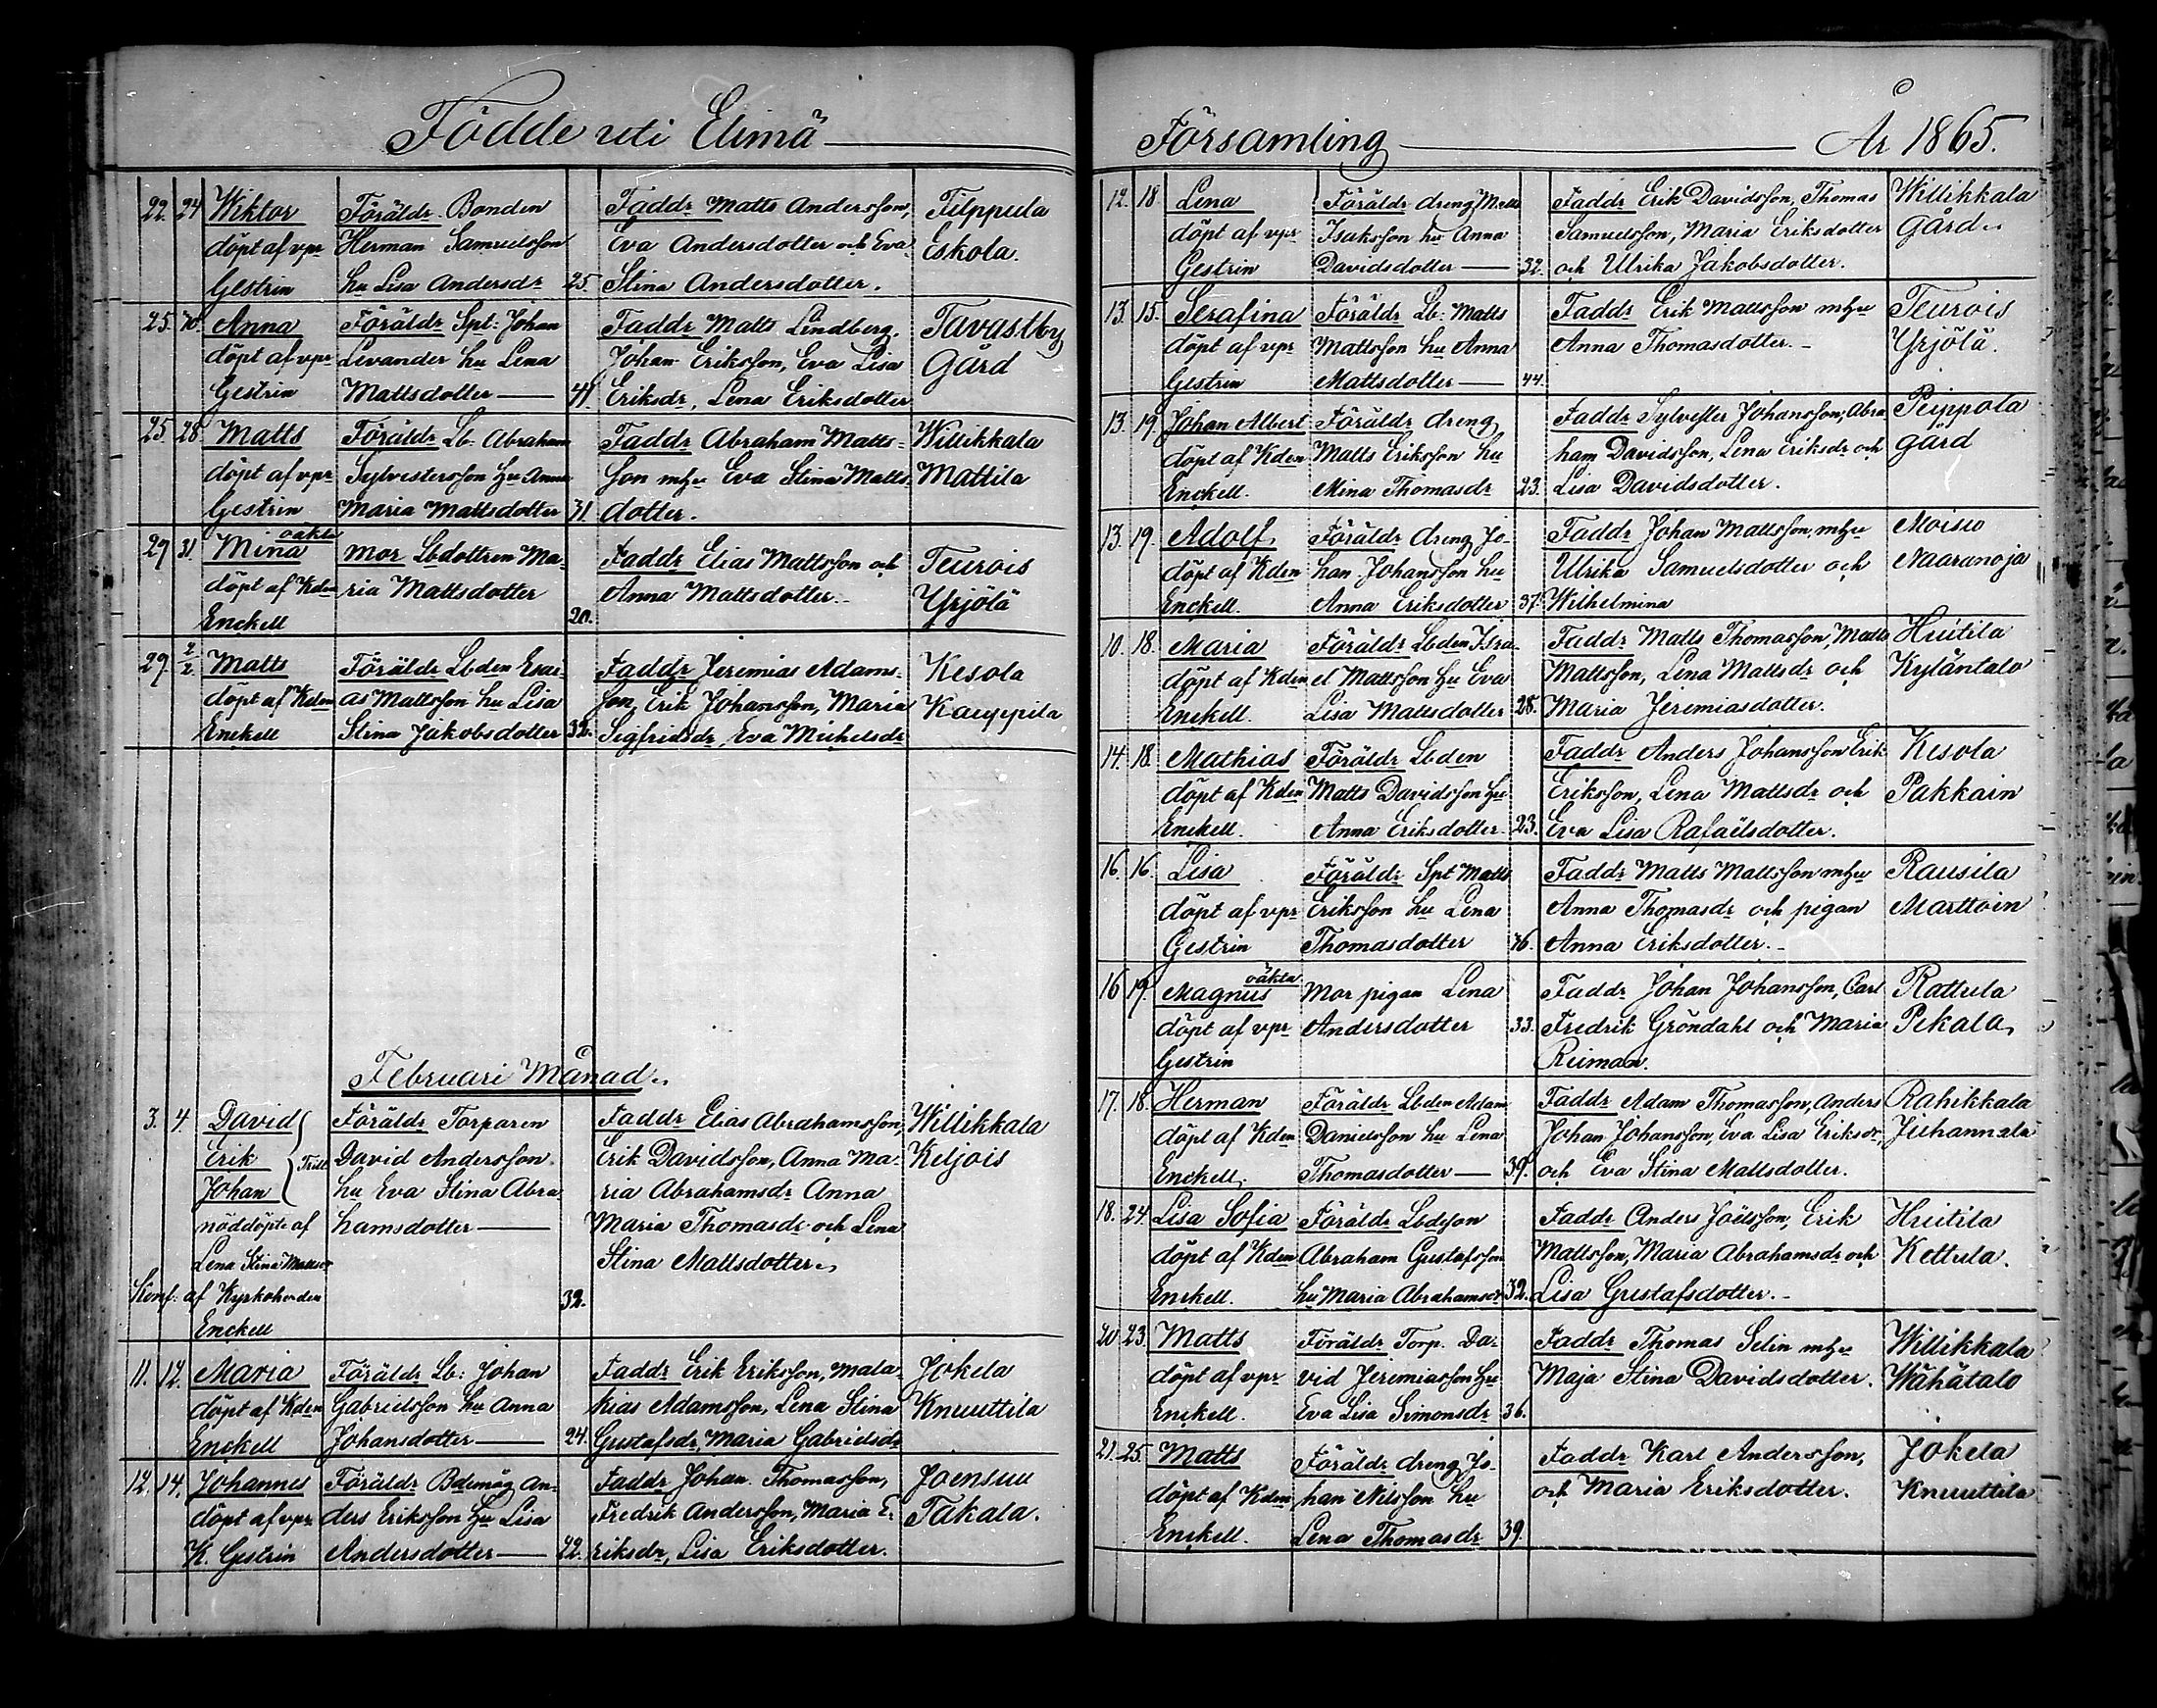 Födde uti Elimä
22. 24 Wiktor Föräldr Bonden Faddr Matts Andersson, Filppula
döpt af vpr Herman Samuelsson Eva Andersdotter och Eva Eskola.
Gestrin hu Lisa Andersdr 25. Stina Andersdotter.
25. Anna Föräldr Spt: Johan Faddr Matts Lindberg, Tavastby
döpt af vpr Levander hu Lena Johan Eriksson, Eva Lisa Gård
Gestrin Mattsdotter 41. Eriksdr, Lena Eriksdotter
25. 28. Matts Föräldr Lb. Abraham Faddr Abraham Matts- Willikkala
döpt af vpr Sylvestersson hu Anna son mhu Eva Stina Matts- Mattila
Gestrin Maria Mattsdotter 31. dotter.
29 31. Mina oäkta mor Lbdottren Ma- Faddr Elias Mattsson och Teurois
döpt af Kden ria Mattsdotter Anna Mattsdotter. Yrjölä
Enckell 20.
29. 2/2 Matts Föräldr Lbden Esai- Faddr Jeremias Adams- Kesola
döpt af Kden as Mattsson hu Lisa son, Erik Johansson, Maria Kauppila
Enckell Stina Jakobsdotter 32. Sigfridsdr, Eva Michelsdr
Februari Månad.
3. 4. David Föräldr Torparen Faddr Elias Abrahamsson, Willikkala
Erik Trill David Andersson Erik Davidsson, Anna Ma- Keljois
Johan hu Eva Stina Abra ria Abrahamsdr Anna
nöddöpte af hamsdotter Maria Thomasdr och Lena
Lena Stina Mattsdr Stina Mattsdotter.
Konf: af Kyrkoherden 32.
Enckell
11. 12. Maria Föräldr Lb: Johan Faddr Erik Eriksson, Mala- Jokela
döpt af Kden Gabrielsson hu Anna kias Adamsson, Lena Stina Knuuttila
Enckell Johansdotter 24. Gustafsdr, Maria Gabrielsdr
12. 14. Johannes Föräldr Bdemåg An- Faddr Johan Thomasson, Joensuu
döpt af vpr ders Eriksson hu Lisa Fredrik Andersson, Maria E- Takala.
K. Gestrin Andersdotter 22. riksdr, Lisa Eriksdotter.
Församling År 1865.
12. 18. Lena Föräldr dreng Matts Faddr Erik Davidsson, Thomas Willikkala
döpt af vpr Isaksson hu Anna Samuelsson, Maria Eriksdotter gård.
Gestrin Davidsdotter 32. och Ulrika Jakobsdotter.
13. 15. Serafina Föräldr Lb. Matts Faddr Erik Mattsson mhu Teurois
döpt af vpr Mattsson hu Anna Anna Thomasdotter. Yrjölä.
Gestrin Mattsdotter 44.
13. 19. Johan Albert Föräldr dreng Faddr Sylvester Johansson, Abra Peippola
döpt af Kden Matts Eriksson hu ham Davidsson, Lena Eriksdr och gård
Enckell. Mina Thomasdr 23. Lisa Davidsdotter.
13. 19. Adolf Föräldr dreng Jo- Faddr Johan Mattsson, mhu Moisio
döpt af Kden han Johansson hu Ulrika Samuelsdotter och Naaranoja
Enckell. Anna Eriksdotter 37. Wilhelmina
10. 18. Maria Föräldr Lbden Isra- Faddr Matts Thomasson, Matts Huitila
döpt af Kden el Mattsson hu Eva Mattsson, Lena Mattsdr och Kyläntalo
Enckell. Lisa Mattsdotter 28. Maria Jeremiasdotter.
14. 18. Mathias Föräldr Lbden Faddr Anders Johansson Erik Kesola
döpt af Kden Matts Davidsson hu Eriksson, Lena Mattsdr och Pakkain
Enckell. Anna Eriksdotter 23. Eva Lisa Rafaëlsdotter.
16. 16. Lisa Föräldr Spt Matts Faddr Matts Mattsson mhu Rausila
döpt af vpr Eriksson hu Lena Anna Thomasdr och pigan Marttoin
Gestrin Thomasdotter 46. Anna Eriksdotter.
16 19. Magnus oäkta Mor pigan Lena Faddr Johan Johansson, Carl Rattula
döpt af vpr Andersdotter 33. Fredrik Gröndahl och Maria Pekala
Gestrin Reiman.
17. 18. Herman Föräldr Lbden Adam Faddr Adam Thomasson, Anders Rahikkala
döpt af Kden Danielsson hu Lena Johan Johansson, Eva Lisa Eriksdr, Juhannala
Enckell. Thomasdotter 39. och Eva Stina Mattsdotter.
18. 24. Lisa Sofia Föräldr Lbdeson Faddr Anders Joëlsson, Erik Huitila
döpt af Kden Abraham Gustafsson Mattsson, Maria Abrahamsdr och Kettula.
Enckell. hu Maria Abrahamsdr 32. Lisa Gustafsdotter.
20 23. Matts Föräldr Torp. Da- Faddr Thomas Selin mhu Willikkala
döpt af vpr vid Jeremiasson hu Maja Stina Davidsdotter. Wähätalo
Enckell. Eva Lisa Simonsdr 36.
21. 25. Matts Föräldr dreng Jo- Faddr Karl Andersson, Jokela
döpt af Kden han Nilsson hu och Maria Eriksdotter. Knuuttila
Enckell. Lena Thomasdr 39.